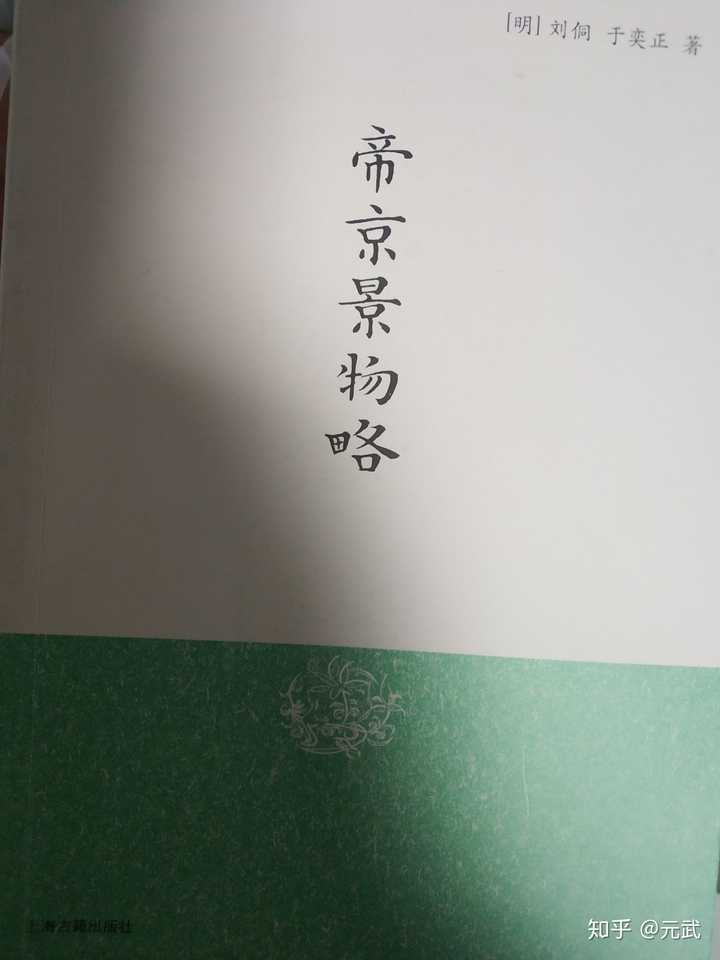 [明] 刘侗 于奕正 著
帝京景物略
上海古籍出版社
知乎 @元武